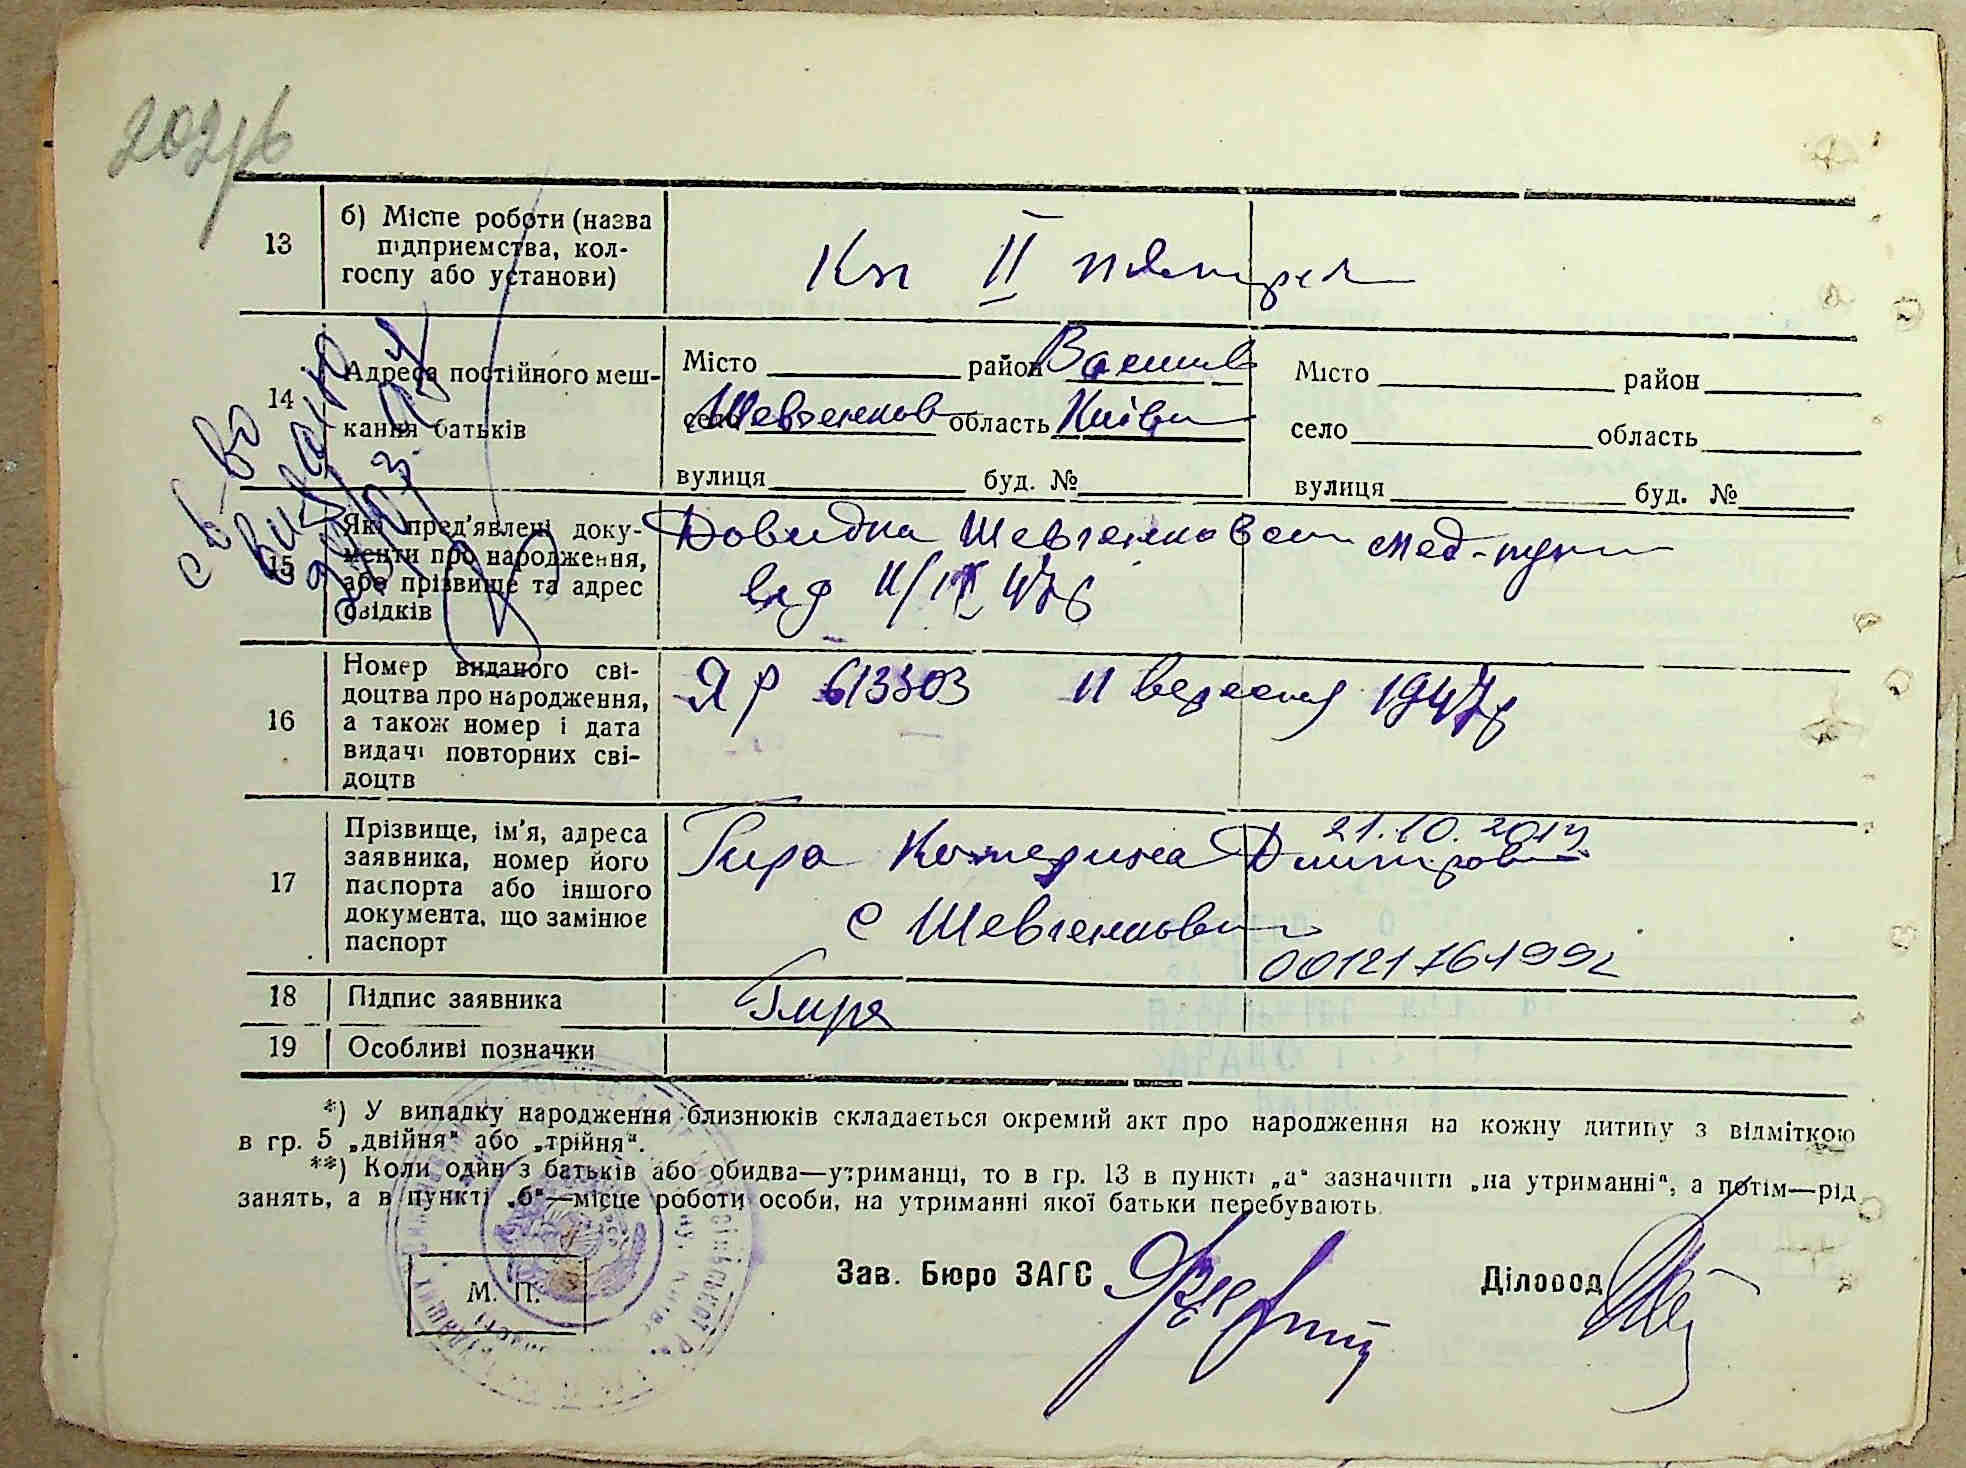 13
б) Місце роботи (назва
підприємства, кол-
госпу або установи)
II
14
Адреса постійного меш-
кання батьків
Місто район
село Шевченков область Київ
вулиця буд. №
Місто район
село область
вулиця буд. №
св-во
15
Які пред'явлені доку-
менти про народження,
або прізвище та адрес
свідків
Довидка Шевченков мед-пунк
від 11/IX 47р
16
Номер виданого сві-
доцтва про народження,
а також номер і дата
видачі повторних сві-
доцтв
ЯР 613303 11 вересня 1947р
17
Прізвище, ім'я, адреса
заявника, номер його
паспорта або іншого
документа, що замінює
паспорт
21.10.
Гира Катерина Дмитров
с Шевченков
18
Підпис заявника
Гира
19
Особливі позначки
*) У випадку народження близнюків складається окремий акт про народження на кожну дитину з відміткою
в гр. 5 „двійня“ або „трійня“.
**) Коли один з батьків або обидва—утриманці, то в гр. 13 в пункті „а“ зазначити „на утриманні“, а потім—рід
занять, а в пункті „б“—місце роботи особи, на утриманні якої батьки перебувають.
М. П.
Зав. Бюро ЗАГС
Діловод